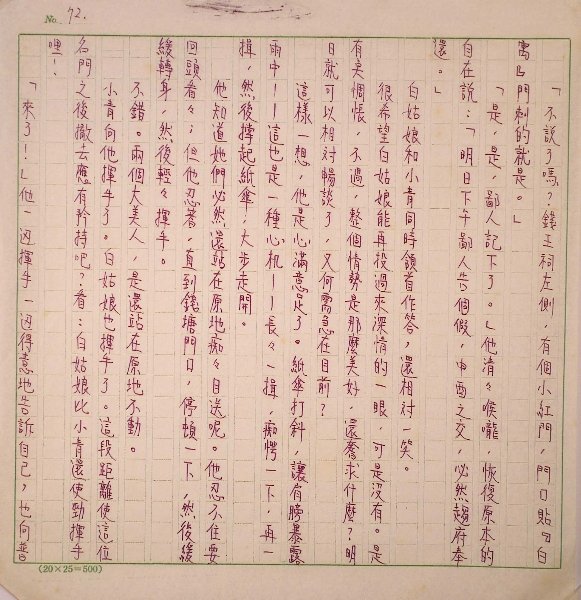 No. 72.
「不說了嗎?錢王祠左側,有個小紅門,門口貼『白
寓』門刺的就是。」
「是,是,鄙人記下了。」他清々喉嚨,恢復原本的
自在說:「明日下午鄙人告個假,申酉之交,必然趨府奉
還。」
白姑娘和小青同時頷首作答,還相對一笑。
很希望白姑娘能再投過來深情的一眼,可是沒有。是
有美惆悵,不過,整個情勢是那麼美好,還奢求什麼?明
日就可以相對暢談了,又何需急在目前?
這樣一想,他是心滿意足了。紙傘打斜,讓肩膀暴露
雨中——這也是一種心机——長々一揖,痴愕一下,再一
揖,然後撐起紙傘,大步走開。
他知道她們必然還站在原地痴々目送呢。他忍不住要
回頭看々;但他忍著,直到錢塘門口,停頓一下,然後緩
緩轉身,然後輕々揮手。
不錯。兩個大美人,是還站在原地不動。
小青向他揮手了。白姑娘也揮手了。這段距離使這位
名門之後撤去應有矜持吧?看:白姑娘比小青還使勁揮手
哩!
「來了!」他一边揮手一边得意地告訴自己,也向菩
(20×25=500)